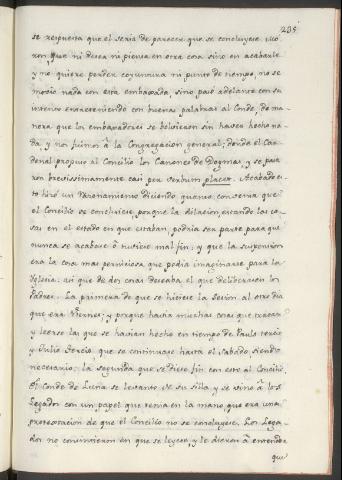 235
se respuesta que el seria de parecer que se concluyese. Mo-
ron, que ni desea ni piensa en otra cosa sino en acabarle
y no quiere perder coyuntura ni punto de tiempo, no se
movio nada con esta embaxada, sino pasò adelante con su
intento entreteniendo con buenas palabras al Conde, de ma-
nera que los embaxadores se bolvieron sin haver hecho na-
da, y nos fuimos à la Congregacion general, donde el Car-
denal propuso al Concilio los Canones de Dogmas, y se pasa-
ron brevissimamente casi per verbum placet. Acabado es-
to hizo un Razonamiento diciendo quanto convenia que
el Concilio se concluyese, porque la dilacion, estando las co-
sas en el estado en que estaban, podria ser parte para que
nunca se acabase ò tuviese mal fin; y que la suspension
era la cosa mas perniciosa que podia imaginarse para la
Iglesia: asi que de dos cosas deseaba el que deliberasen los
Padres. La primera de que se hiciese la Sesion al otro dia
que era Viernes; y porque havia muchas cosas que tratar
y leerse las que se havian hecho en tiempo de Paulo tercio
y Julio tercio, que se continuase hasta el Sabado, siendo
necesario: la segunda que se diese fin con esto al Concilio.
El Conde de Luna se levantò de su silla, y se vino à los
Legados con un papel que tenia en la mano, que era una
protestacion de que el Concilio no se concluyese. Los Lega-
dos no consintieron en que se leyese, y le dieron à entender
que